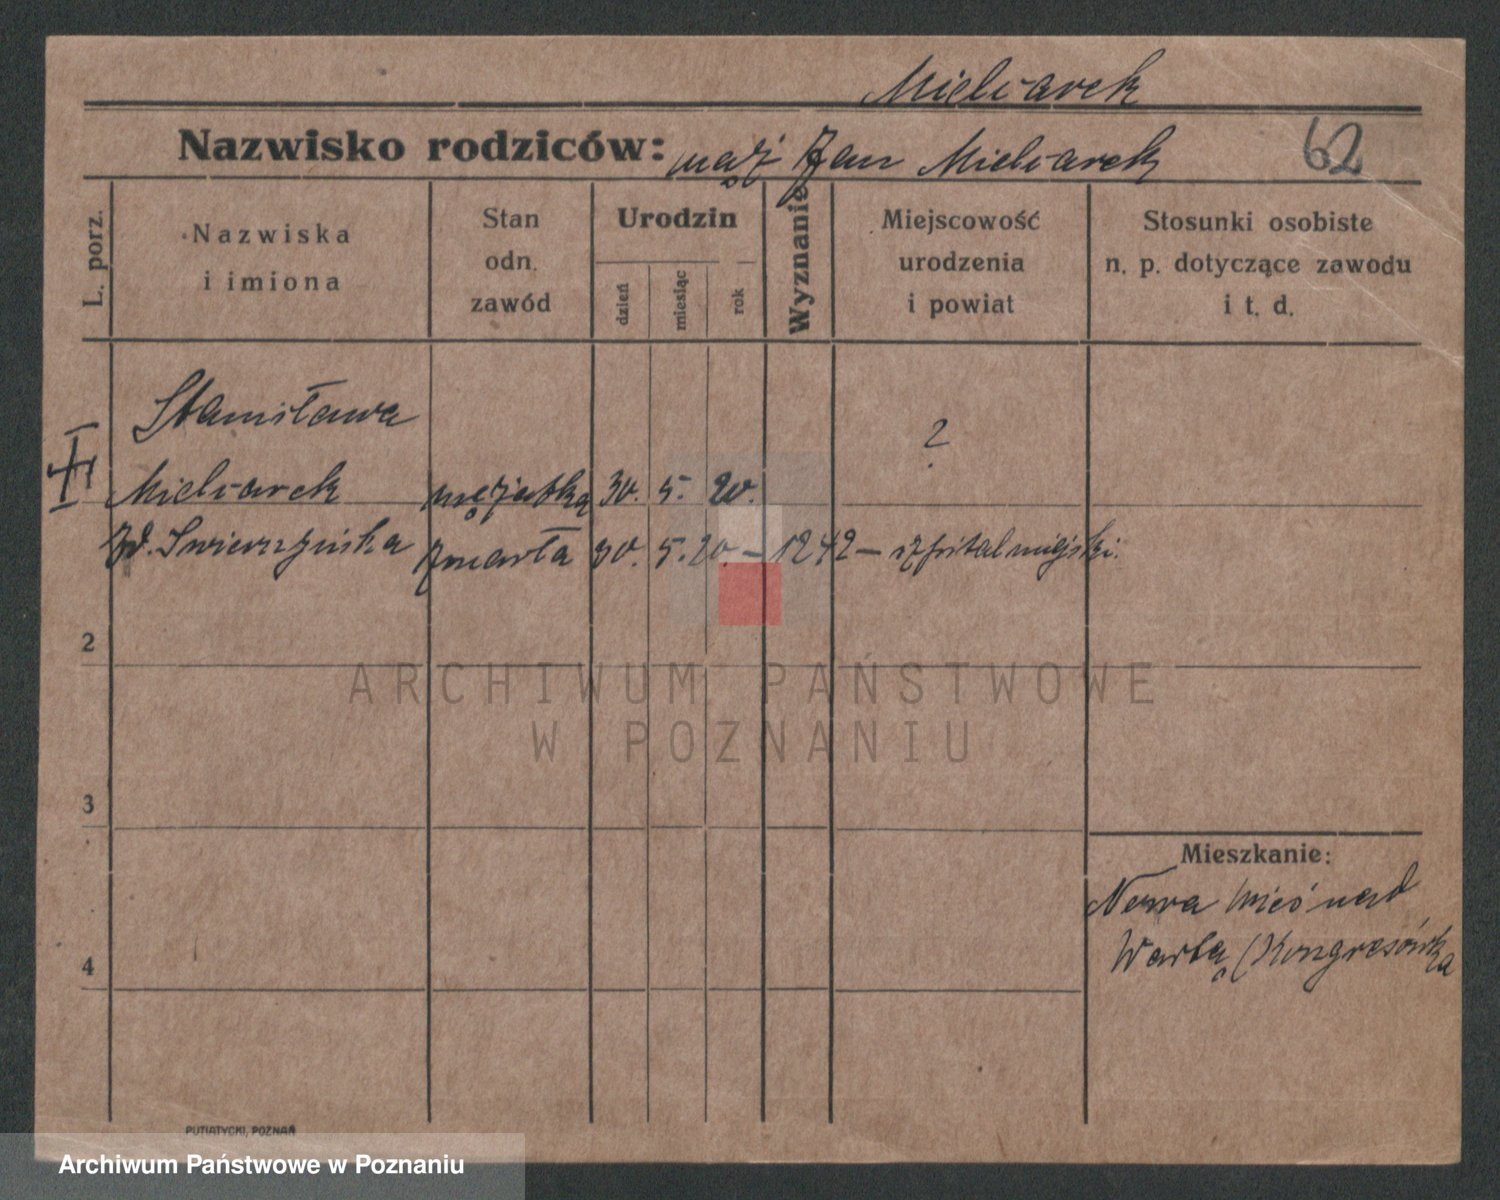 Mielcarek
Nazwisko rodziców: mąż Jan Mielcarek 62
L. porz.
Nazwiska
i imiona
Stan
odn.
zawód
Urodzin
dzień
miesiąc
rok
Wyznanie
Miejscowość
urodzenia
i powiat
Stosunki osobiste
n. p. dotyczące zawodu
i t. d.
Stanisława
?
Mielcarek mężatka 30. 5. 20.
zd. Swierzyńska zmarła 30. 5. 20. – 1242 – szpital miejski.
2
ARCHIWUM PAŃSTWOWE
W POZNANIU
3
Mieszkanie:
Nowa wieś nad
Wartą (Kongresówka
4
PUTIATYCKI, POZNAŃ
Archiwum Państwowe w Poznaniu